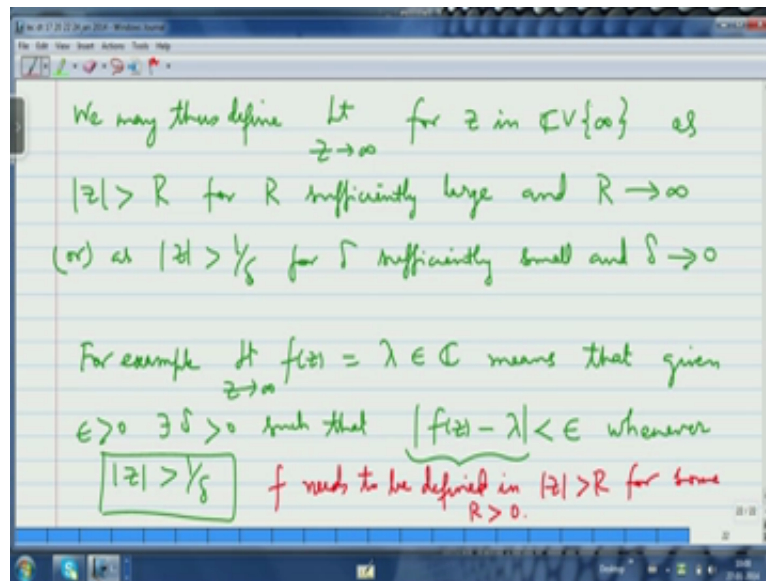 lec dt 17 20 22 24 jan 2014 - Windows Journal
File Edit View Insert Actions Tools Help
We may thus define Lt z→∞ for z in ℂ∪{∞} as
|z| > R for R sufficiently large and R → ∞
(or) as |z| > 1/δ for δ sufficiently small and δ → 0
For example Lt z→∞ f(z) = λ ∈ ℂ means that given
ϵ>0 ∃ δ>0 such that |f(z) - λ| < ϵ whenever
|z| > 1/δ f needs to be defined in |z| > R for some
R > 0.
22